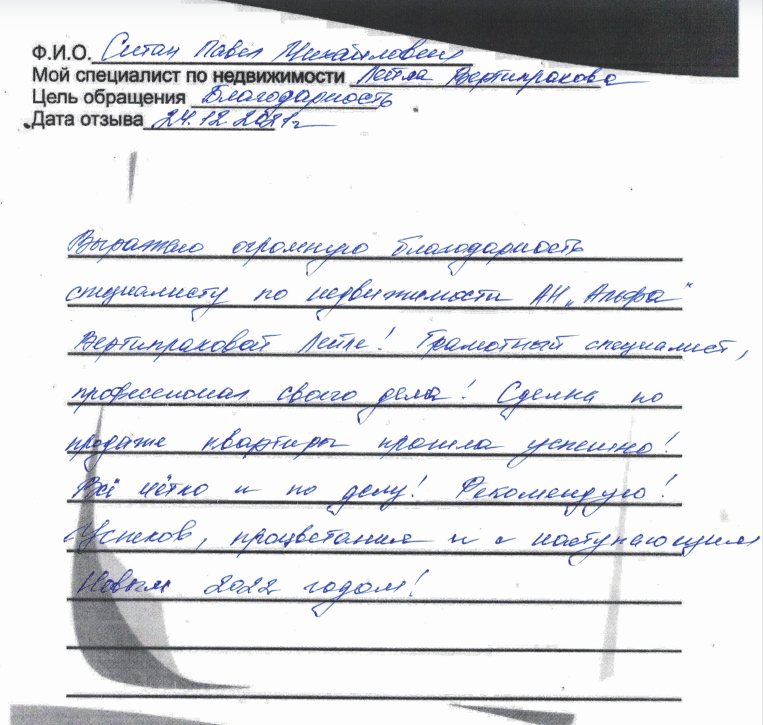 Ф.И.О. Павел Михайлович
Мой специалист по недвижимости Лейла Вертипрахова
Цель обращения Благодарность
Дата отзыва 24.12.2021г
Выражаю огромную благодарность
специалисту по недвижимости АН „Альфа"
Вертипраховой Лейле! Грамотный специалист,
профессионал своего дела! Сделка по
продаже квартиры прошла успешно!
Всё чётко и по делу! Рекомендую!
Успехов, процветания и с наступающим
Новым 2022 годом!